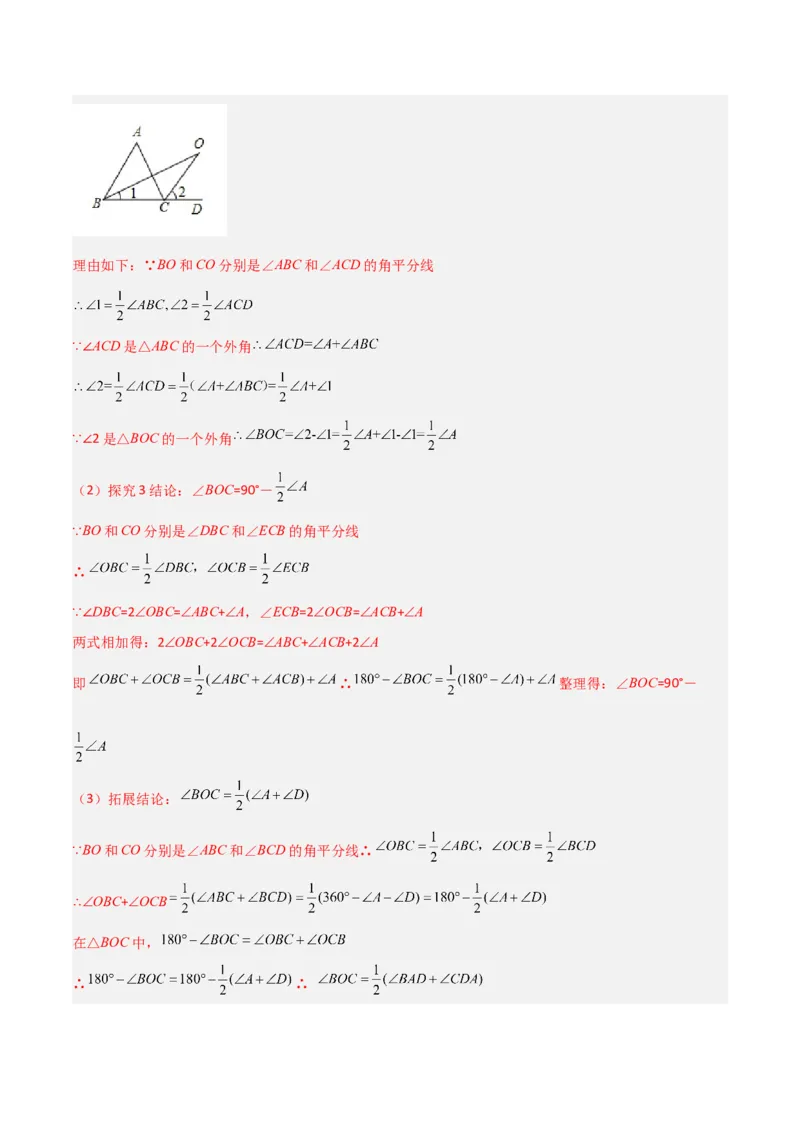 A
O
B
1
C
2
D
理由如下：∵BO和CO分别是∠ABC和∠ACD的角平分线
∴∠1=1/2∠ABC,∠2=1/2∠ACD
∵∠ACD是△ABC的一个外角∴∠ACD=∠A+∠ABC
∴∠2=1/2∠ACD=1/2(∠A+∠ABC)=1/2∠A+∠1
∵∠2是△BOC的一个外角∴∠BOC=∠2-∠1=1/2∠A+∠1-∠1=1/2∠A
（2）探究3结论：∠BOC=90°－1/2∠A
∵BO和CO分别是∠DBC和∠ECB的角平分线
∴∠OBC=1/2∠DBC，∠OCB=1/2∠ECB
∵∠DBC=2∠OBC=∠ABC+∠A，∠ECB=2∠OCB=∠ACB+∠A
两式相加得：2∠OBC+2∠OCB=∠ABC+∠ACB+2∠A
即∠OBC+∠OCB=1/2(∠ABC+∠ACB)+∠A∴180°-∠BOC=1/2(180°-∠A)+∠A整理得：∠BOC=90°－
1/2∠A
（3）拓展结论：∠BOC=1/2(∠A+∠D)
∵BO和CO分别是∠ABC和∠BCD的角平分线∴∠OBC=1/2∠ABC，∠OCB=1/2∠BCD
∴∠OBC+∠OCB=1/2(∠ABC+∠BCD)=1/2(360°-∠A-∠D)=180°-1/2(∠A+∠D)
在△BOC中，180°-∠BOC=∠OBC+∠OCB
∴180°-∠BOC=180°-1/2(∠A+∠D)∴ ∠BOC=1/2(∠BAD+∠CDA)